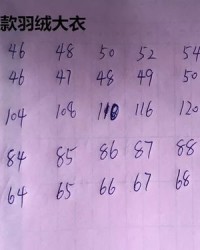 款羽绒大衣
46 48 50 52 54
46 47 48 49 50
104 108 110 116 120
84 85 86 87 88
64 65 66 67 68